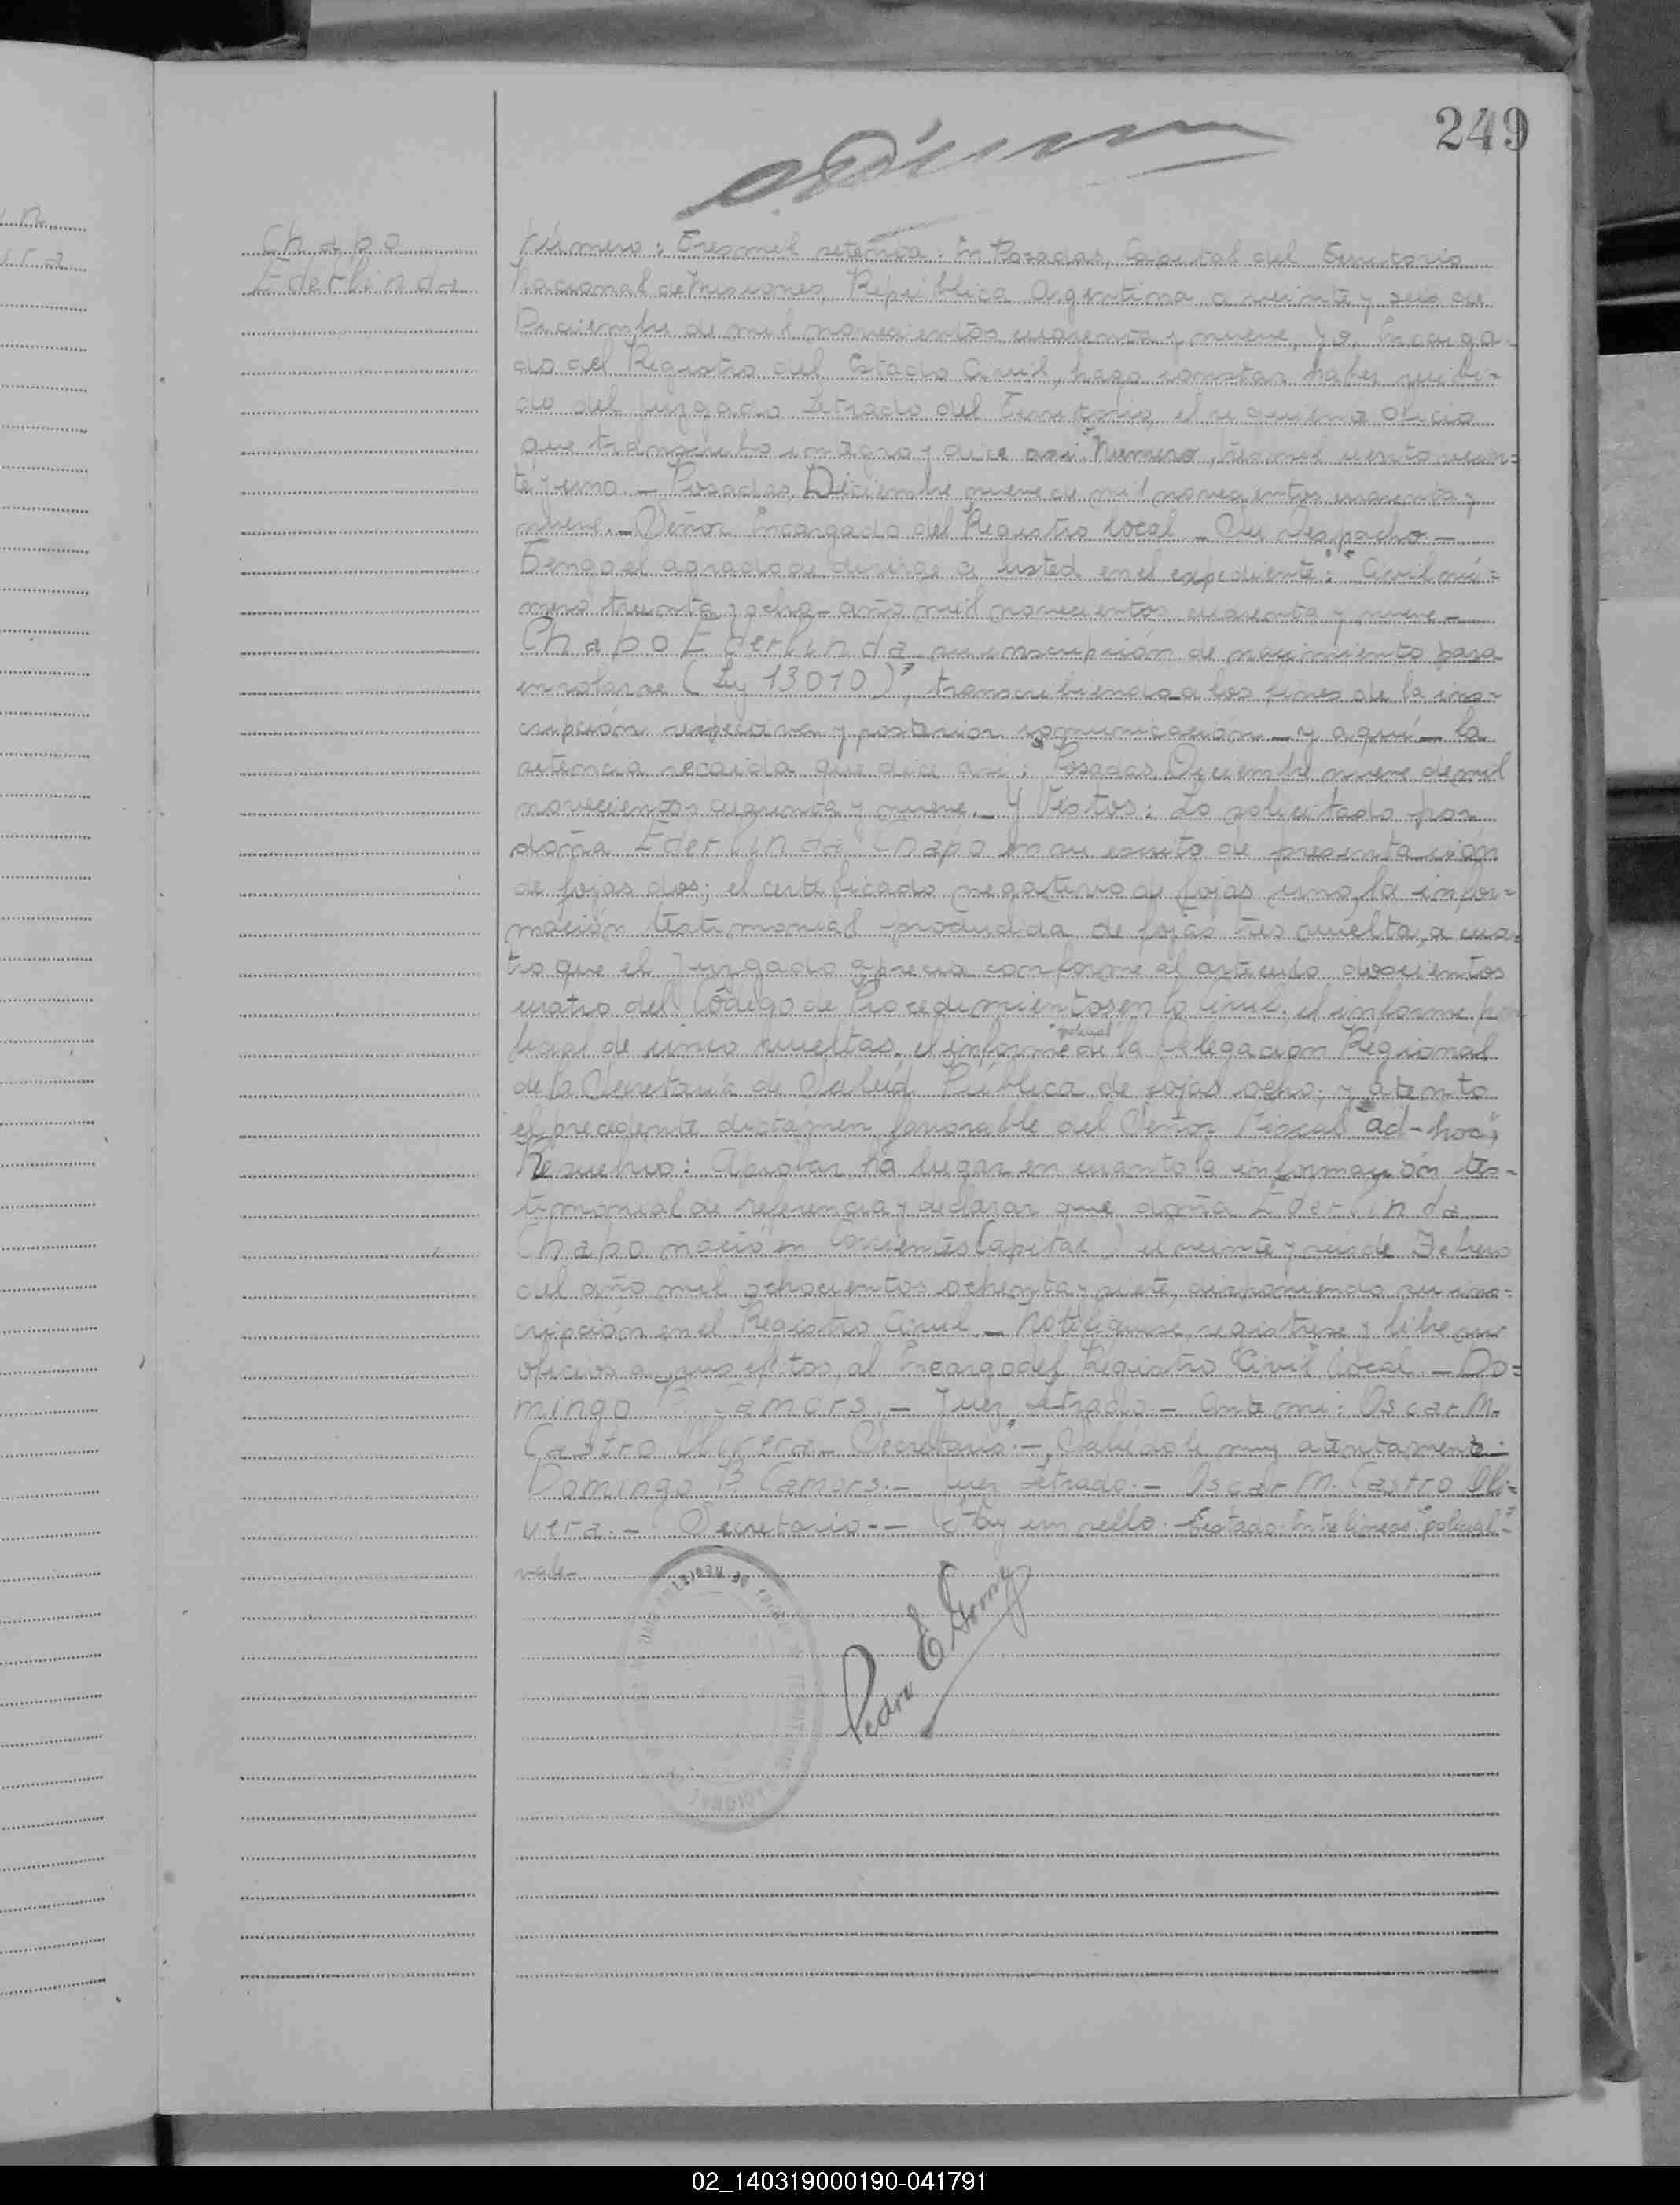 249
Chapo
Ederlinda
Número: Tresmil setenta: En Posadas, Capital del Territorio
Nacional de Misiones, República Argentina, a veinte y seis de
Diciembre de mil novecientos cuarenta y nueve, Yo, Encarga-
do del Registro del Estado Civil, hago constar haber recibi-
do del Juzgado Letrado del Territorio, el siguiente oficio
que transcribo integro y dice asi: "Número, tresmil ciento vein-
te y uno. - Posadas, Diciembre nueve de mil novecientos cuarenta y
nueve. - Señor Encargado del Registro local - Su Despacho -
Tengo el agrado de dirirge a usted en el expediente: "Civil nú-
mero treinta y ocho - año mil novecientos cuarenta y nueve -
Chapo Ederlinda su inscripción de nacimiento para
enrolarse (Ley 13010)", transcribiendo a los fines de la ins-
cripción respectiva y posterior comunicación - y aquí - la
setencia recaida que dice asi: "Posadas, Diciembre nueve de mil
novecientos cuarenta y nueve. - Y Vistos: Lo solicitado por
doña Ederlinda Chapo en su escrito de presentación
de fojas dos; el certificado negativo de fojas uno, la infor-
mación testimonial producida de fojas tres vuelta, a cua-
tro que el Juzgado aprecia conforme al articulo doscientos
cuatro del Código de Procedimientos en lo Civil, el informe po
licial de cinco vueltas, el informe de la Delegación Regional
"policial"
de la Secretaría de Salud Pública de fojas ocho; y atento
el precedente dictámen favorable del Señor Fiscal "ad-hoc",
Resuelvo: Aprobar ha lugar en cuanto la información tes-
timonial de referencia y declarar que doña Ederlinda
Chapo nació en Corrientes (Capital) el veinte y seis de Febrero
del año mil ochocientos ochenta y siete, disponiendo su ins-
cripción en el Registro Civil - Notifiquese, registrese y librese
oficios a sus efectos, al Encargo del Registro Civil local. - Do-
mingo B Camors. - Juez Letrado. - Ante mi: Oscar M.
Castro Olivera - Secretario". - Salúdole muy atentamente. -
Domingo B Camors. - Juez Letrado. - Oscar M. Castro Oli-
vera. - Secretario - - Hay un sello. Testado. Entre lineas "policial" -
vale -
Pedro E Gomez
02_140319000190-041791